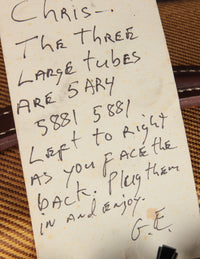 Chris-.
The three
Large tubes
are 5AR4
5881 5881
Left to Right
as you face the
back. Plug them
in and enjoy.
G.E.